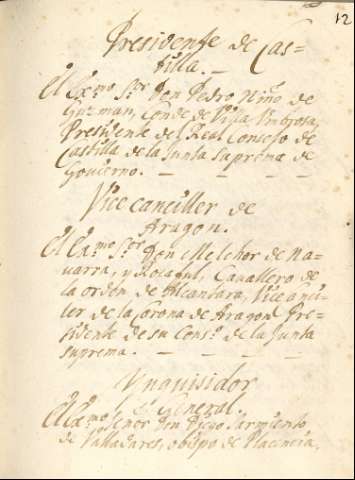 12
Presidente de Cas-
tilla.
El Exmo Sor Don Pedro Niño de
Guzman, Conde de Villa Umbrosa,
Presidente del Real Consejo de
Castilla de la Junta Suprema de
Govierno.
Vice canciller de
Aragon.
El Exmo Sor Don Melchor de Na-
varra, y Rocaful, Cavallero de
la orden de Alcantara, Vice canci-
ller de la Corona de Aragon Pre-
sidente de su Conso de la Junta
suprema.
Ynquisidor
General.
El Exmo Señor Don Diego Sarmiento
de Valladares, obispo de Plaçencia,